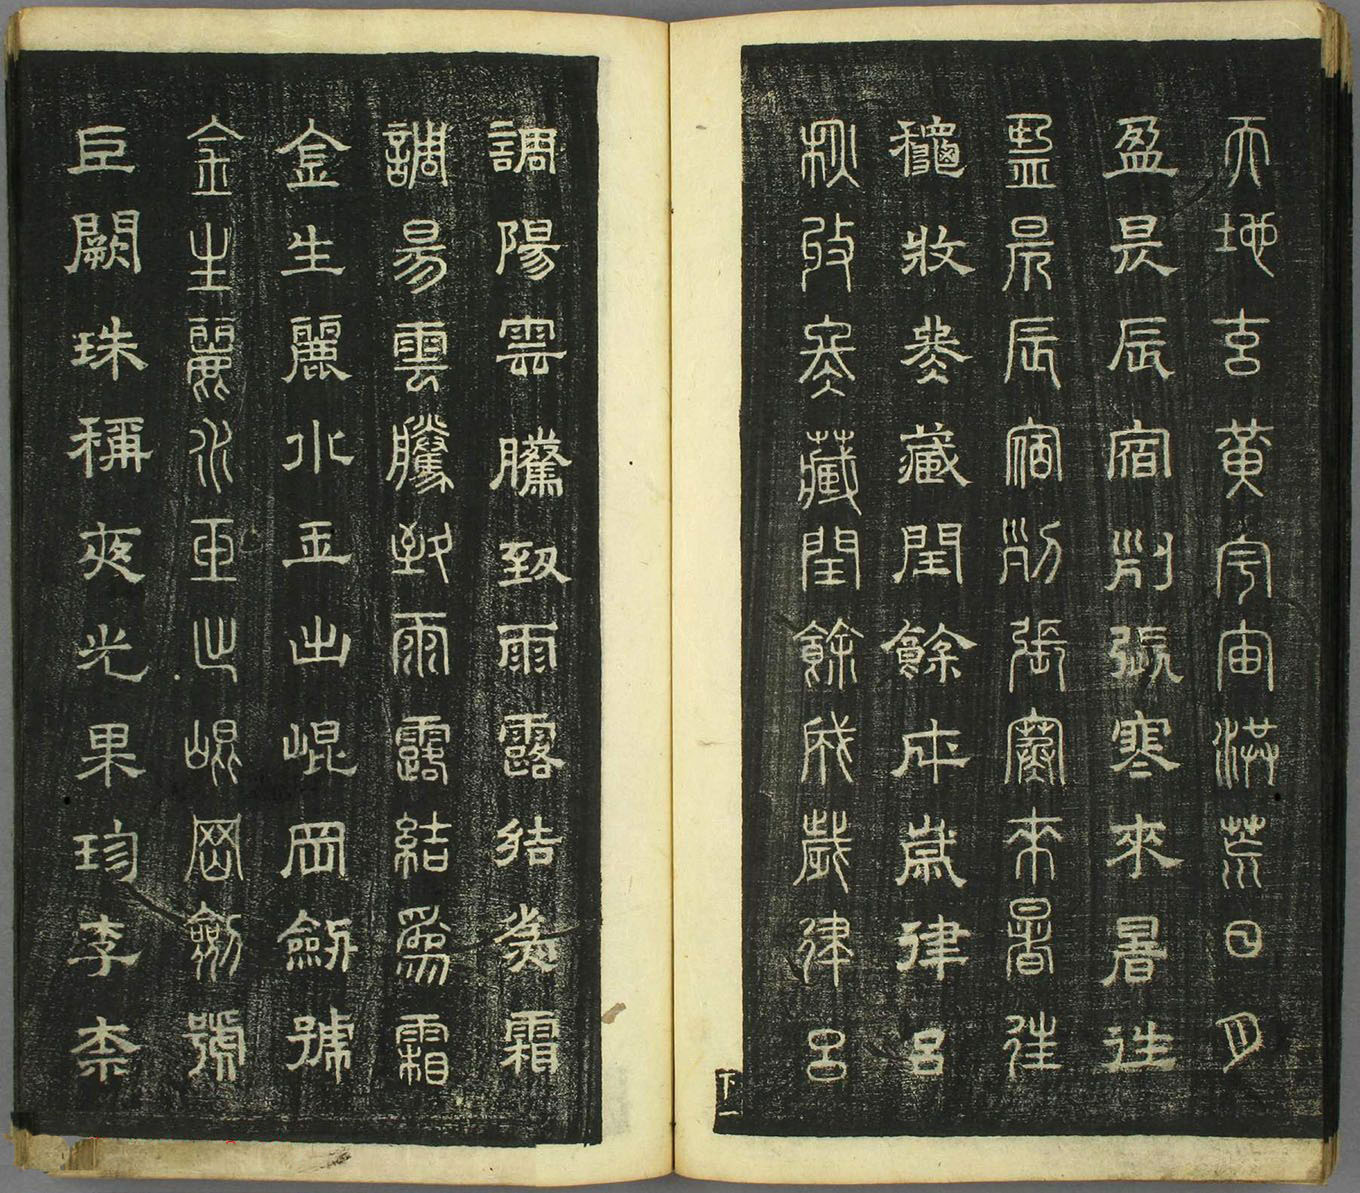 天地玄黃宇宙洪荒日月
盈昃辰宿列張寒來暑往
盈昃辰宿列張寒來暑往
秋收冬藏閏餘成歲律呂
秋收冬藏閏餘成歲律呂
下一
調陽雲騰致雨露結爲霜
調陽雲騰致雨露結爲霜
金生麗水玉出崐岡劒號
金生麗水玉出崐岡劒號
巨闕珠稱夜光果珍李柰